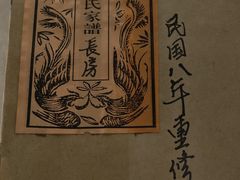 民家譜
長房
民国八年重修